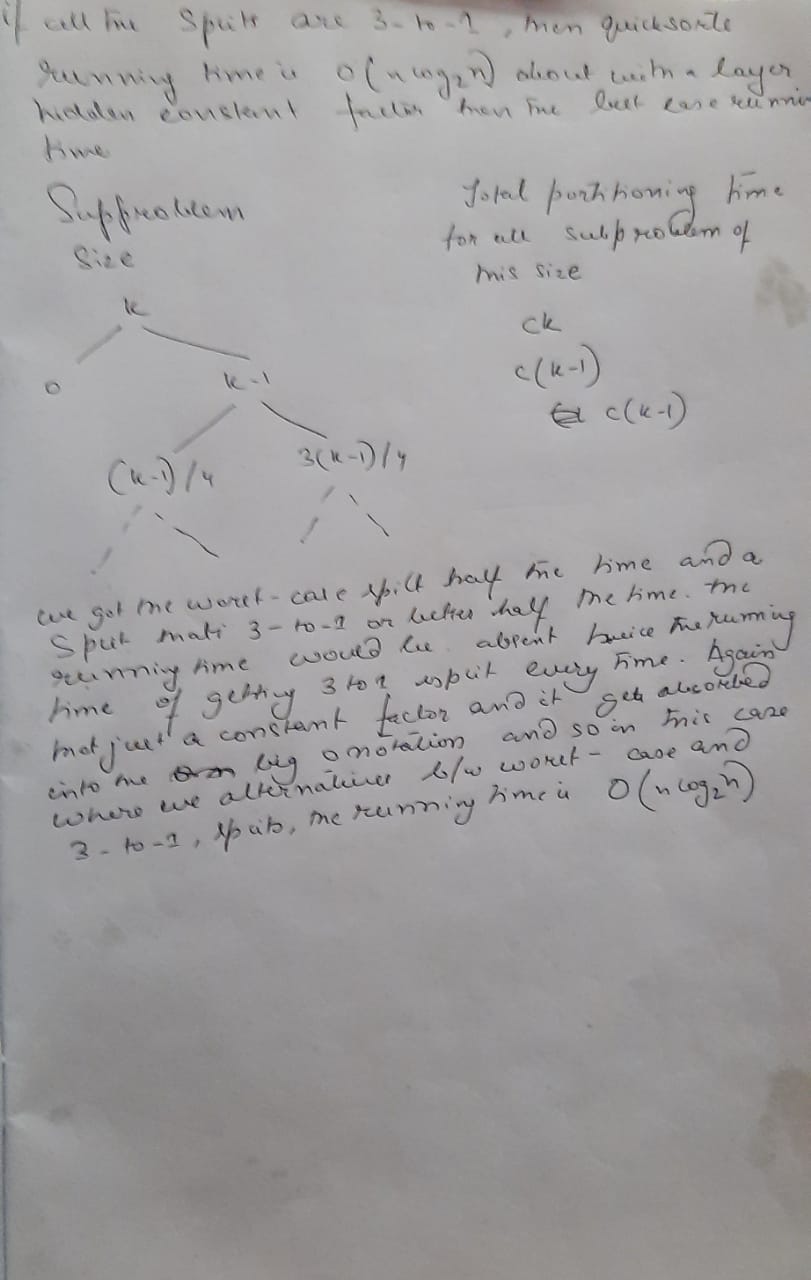 if all the Splits are 3-to-1, then quicksorts
running time is O(n log₂n) about with a layer
hidden constant factor then the best case running
time
Suppreoblem
Size
Total portitioning time
for all subproblem of
this size
k
ck
0
k-1
c(k-1)
(k-1)/4
3(k-1)/4
c(k-1)
we got the worst-case spilt half the time and a
Split that 3-to-1 or better half the time. the
running time would be twice the running
time of getting 3 to 1 split every time. Again
that just a constant factor and it gets absorbed
into the big o notation and so in this case
where we alternatives b/w worst-case and
3-to-1, splits, the running time is O(n log₂n)